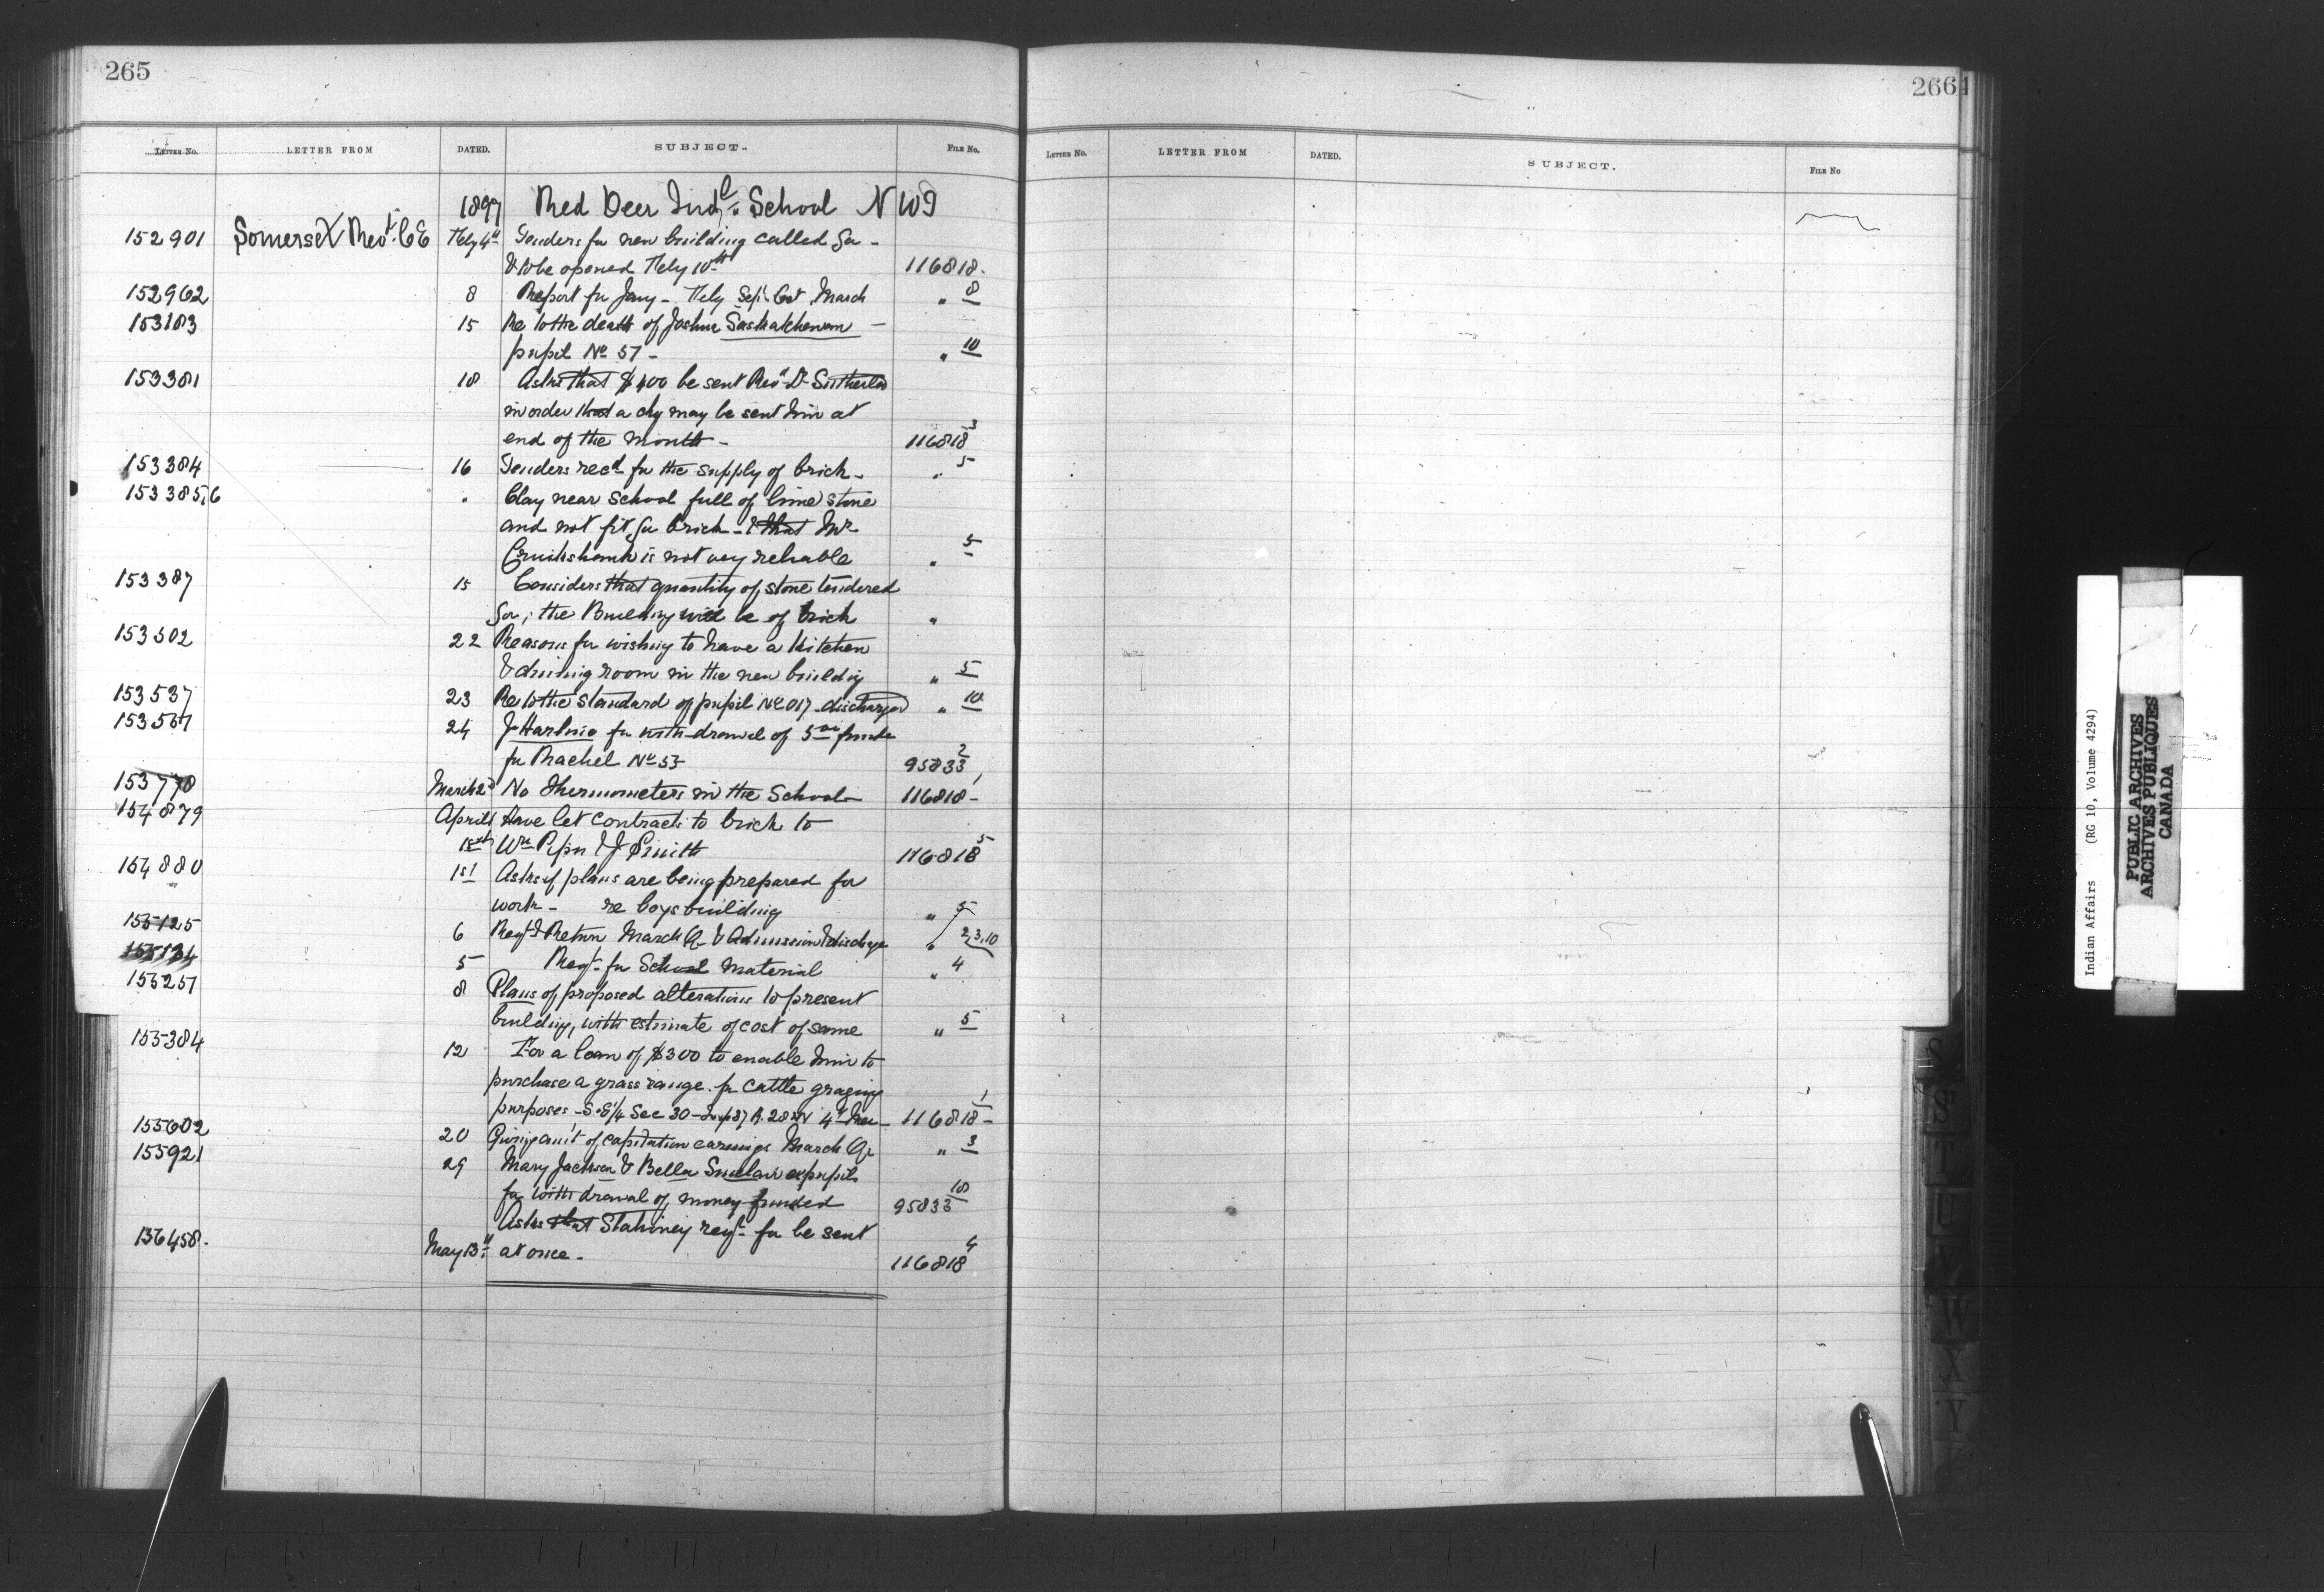 265
LETTER No. LETTER FROM DATED. SUBJECT. FILE No.
1897 Red Deer Indl. School N W T
152901 Somerset Revd. C E Feby 4th Tenders for new building called for -
& to be opened Feby 10th 116818.
152962 8 Report for Jany - Feby Sept. Oct March " 8
153183 15 Re to the death of Joshua Saskatchewan -
pupil No 57 - " 10
153381 18 Asks that $400 be sent Revd Dr Sutherland
in order that a chq may be sent him at
end of the month - 116818 3
153384 16 Tenders recd for the supply of brick - " 5
153385,6 " Clay near School full of lime stone
and not fit for brick - & that Mr
Cruikshank is not very reliable " 5
153387 15 Considers that quantity of stone tendered
for; the Building will be of brick "
153502 22 Reasons for wishing to have a Kitchen
& dining room in the new building " 5
153537 23 Re to the standard of pupil No 017 discharged " 10
153567 24 for with-drawal of 5.00 funds
for Rachel No 53 95833 2
153770 March 2d No Thermometers in the School - 116818 - 1
154879 April 1 Have let contracts to brick to
Wm & J Smith 116818 5
154880 1st Asks if plans are being prepared for
work - re boys building " 5
155125 6 Reqt & Return March Qr & Admission & discharge " 2,3,10
155134 5 Reqt for School material " 4
155257 8 Plans of proposed alterations to present
building, with estimate of cost of same " 5
155384 12 For a loan of $300 to enable him to
purchase a grass range for cattle grazing
purposes - S.E 1/4 Sec 30 - Twp 37 R. 28 W 4th Mer - 116818 - 1
155602 20 Giving am't of capitation earnings March Qr " 3
155921 29 Mary Jackson & Bella Sinclair expupils
for withdrawal of money funded 95833 18
Asks that Stationery reqt. for be sent
156458. May 13th at once - 116818 4
2664
LETTER No. LETTER FROM DATED. SUBJECT. FILE No
S
S
T
U
V
W
X
Y
Indian Affairs (RG 10, Volume 4294)
PUBLIC ARCHIVES
ARCHIVES PUBLIQUES
CANADA